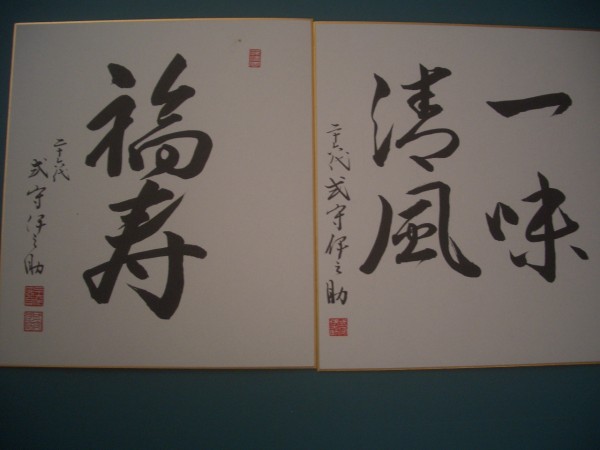 一味
清風
二十六代 式守伊之助
福寿
二十六代
式守伊之助